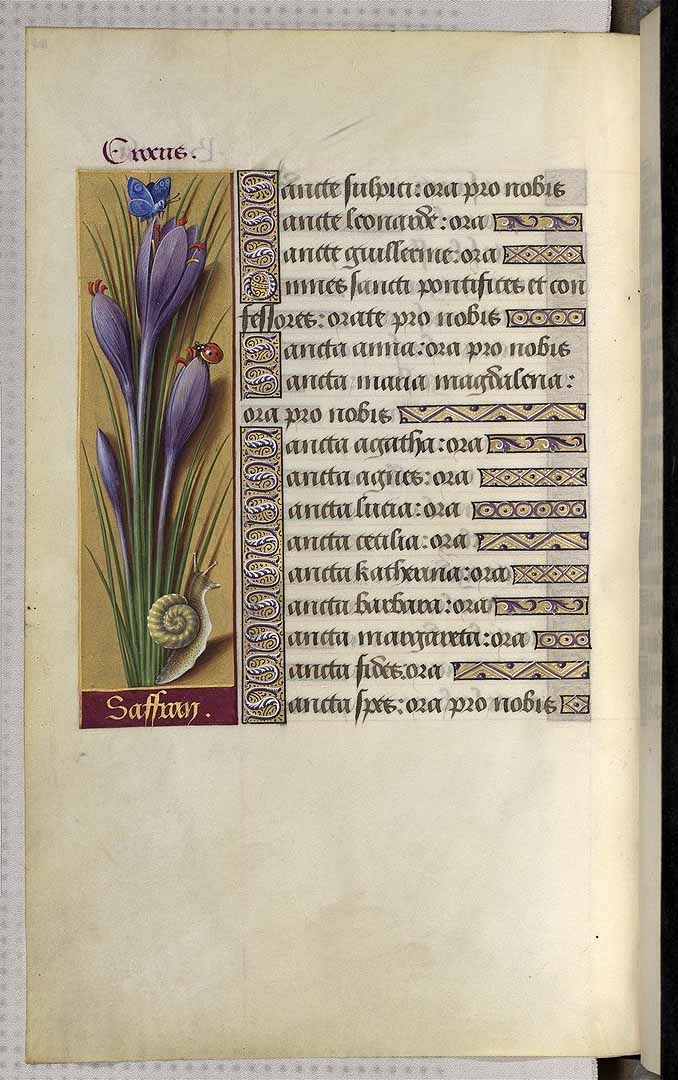 Crocus.
Sancte sulpici: ora pro nobis
Sancte leonarde: ora
Sancte guillerme: ora
Omnes sancti pontifices et con
fessores: orate pro nobis
Sancta anna: ora pro nobis
Sancta maria magdalena:
ora pro nobis
Sancta agatha: ora
Sancta agnes: ora
Sancta lucia: ora
Sancta cecilia: ora
Sancta katherina: ora
Sancta barbara: ora
Sancta margareta: ora
Sancta fides: ora
Sancta spes: ora pro nobis
Saffran.